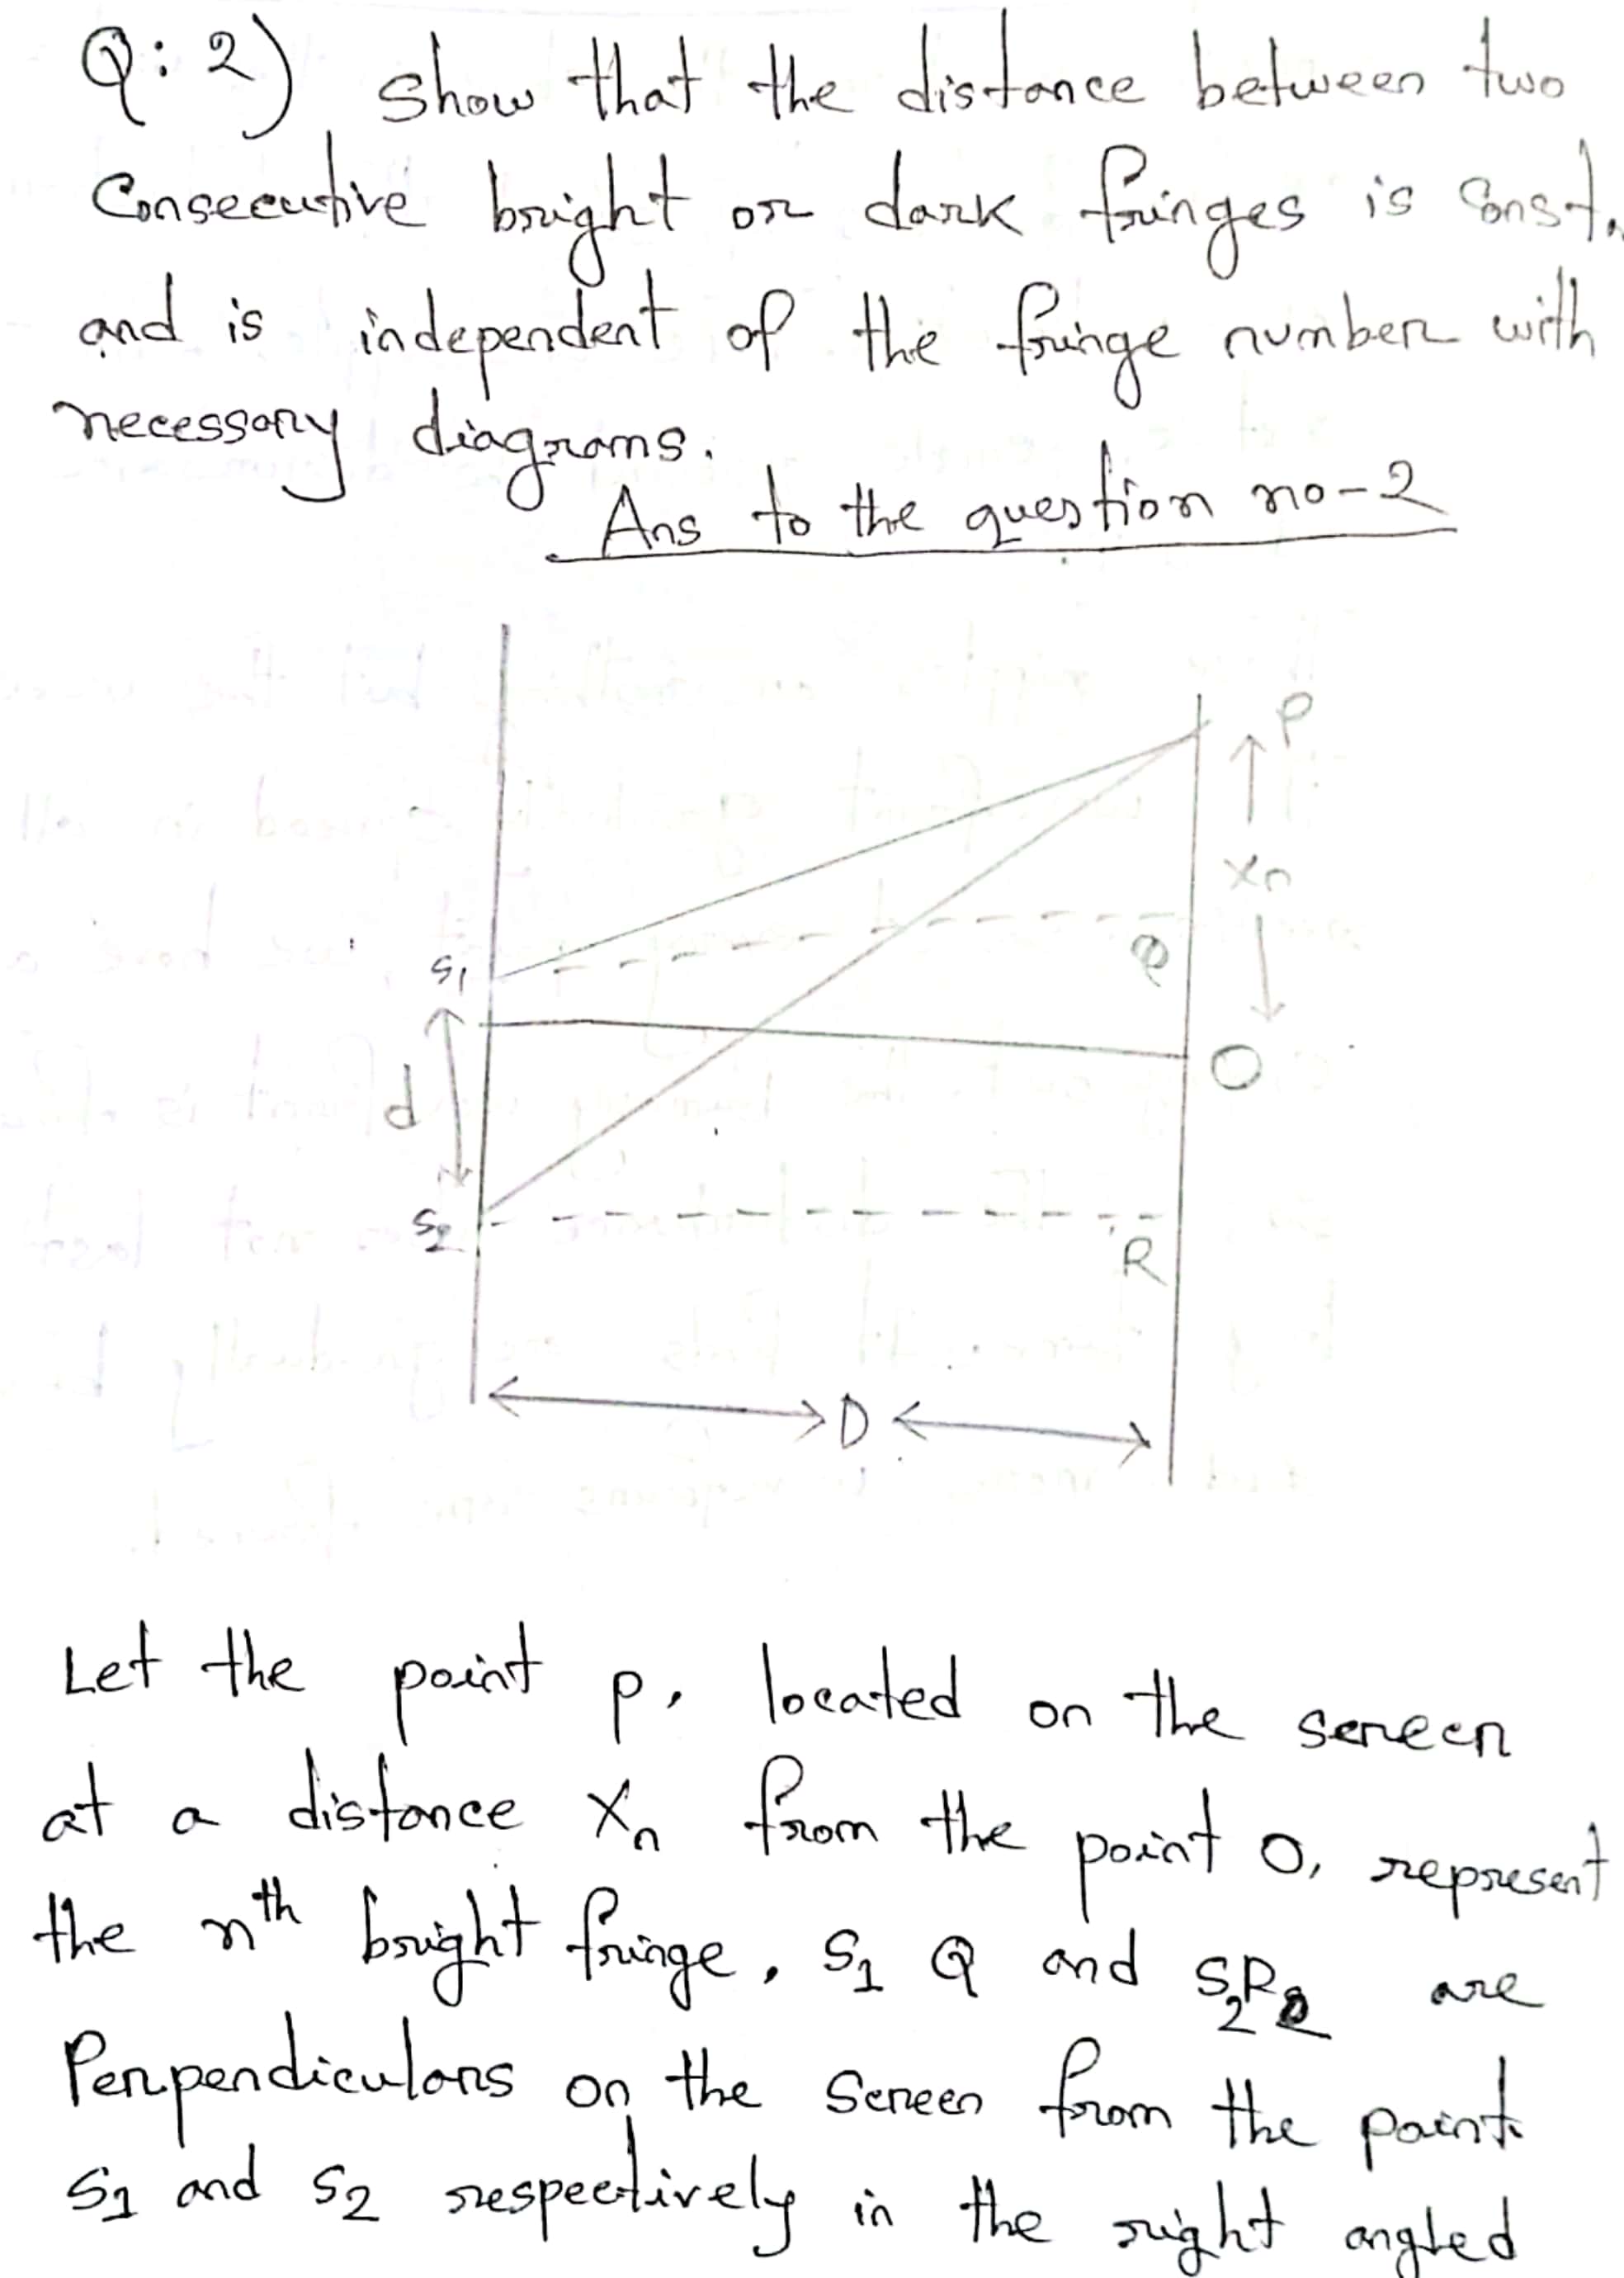 Q: 2) Show that the distance between two
Consecutive bright or dark fringes is Const.
and is independent of the fringe number with
necessary diagrams.
Ans to the question no-2
P
Xn
S1
Q
O
d
S2
R
D
Let the point p, located on the screen
at a distance Xn from the point O, represent
the nth bright fringe, S1 Q and S2R2 are
Perpendiculars on the screen from the point
S1 and S2 respectively in the right angled